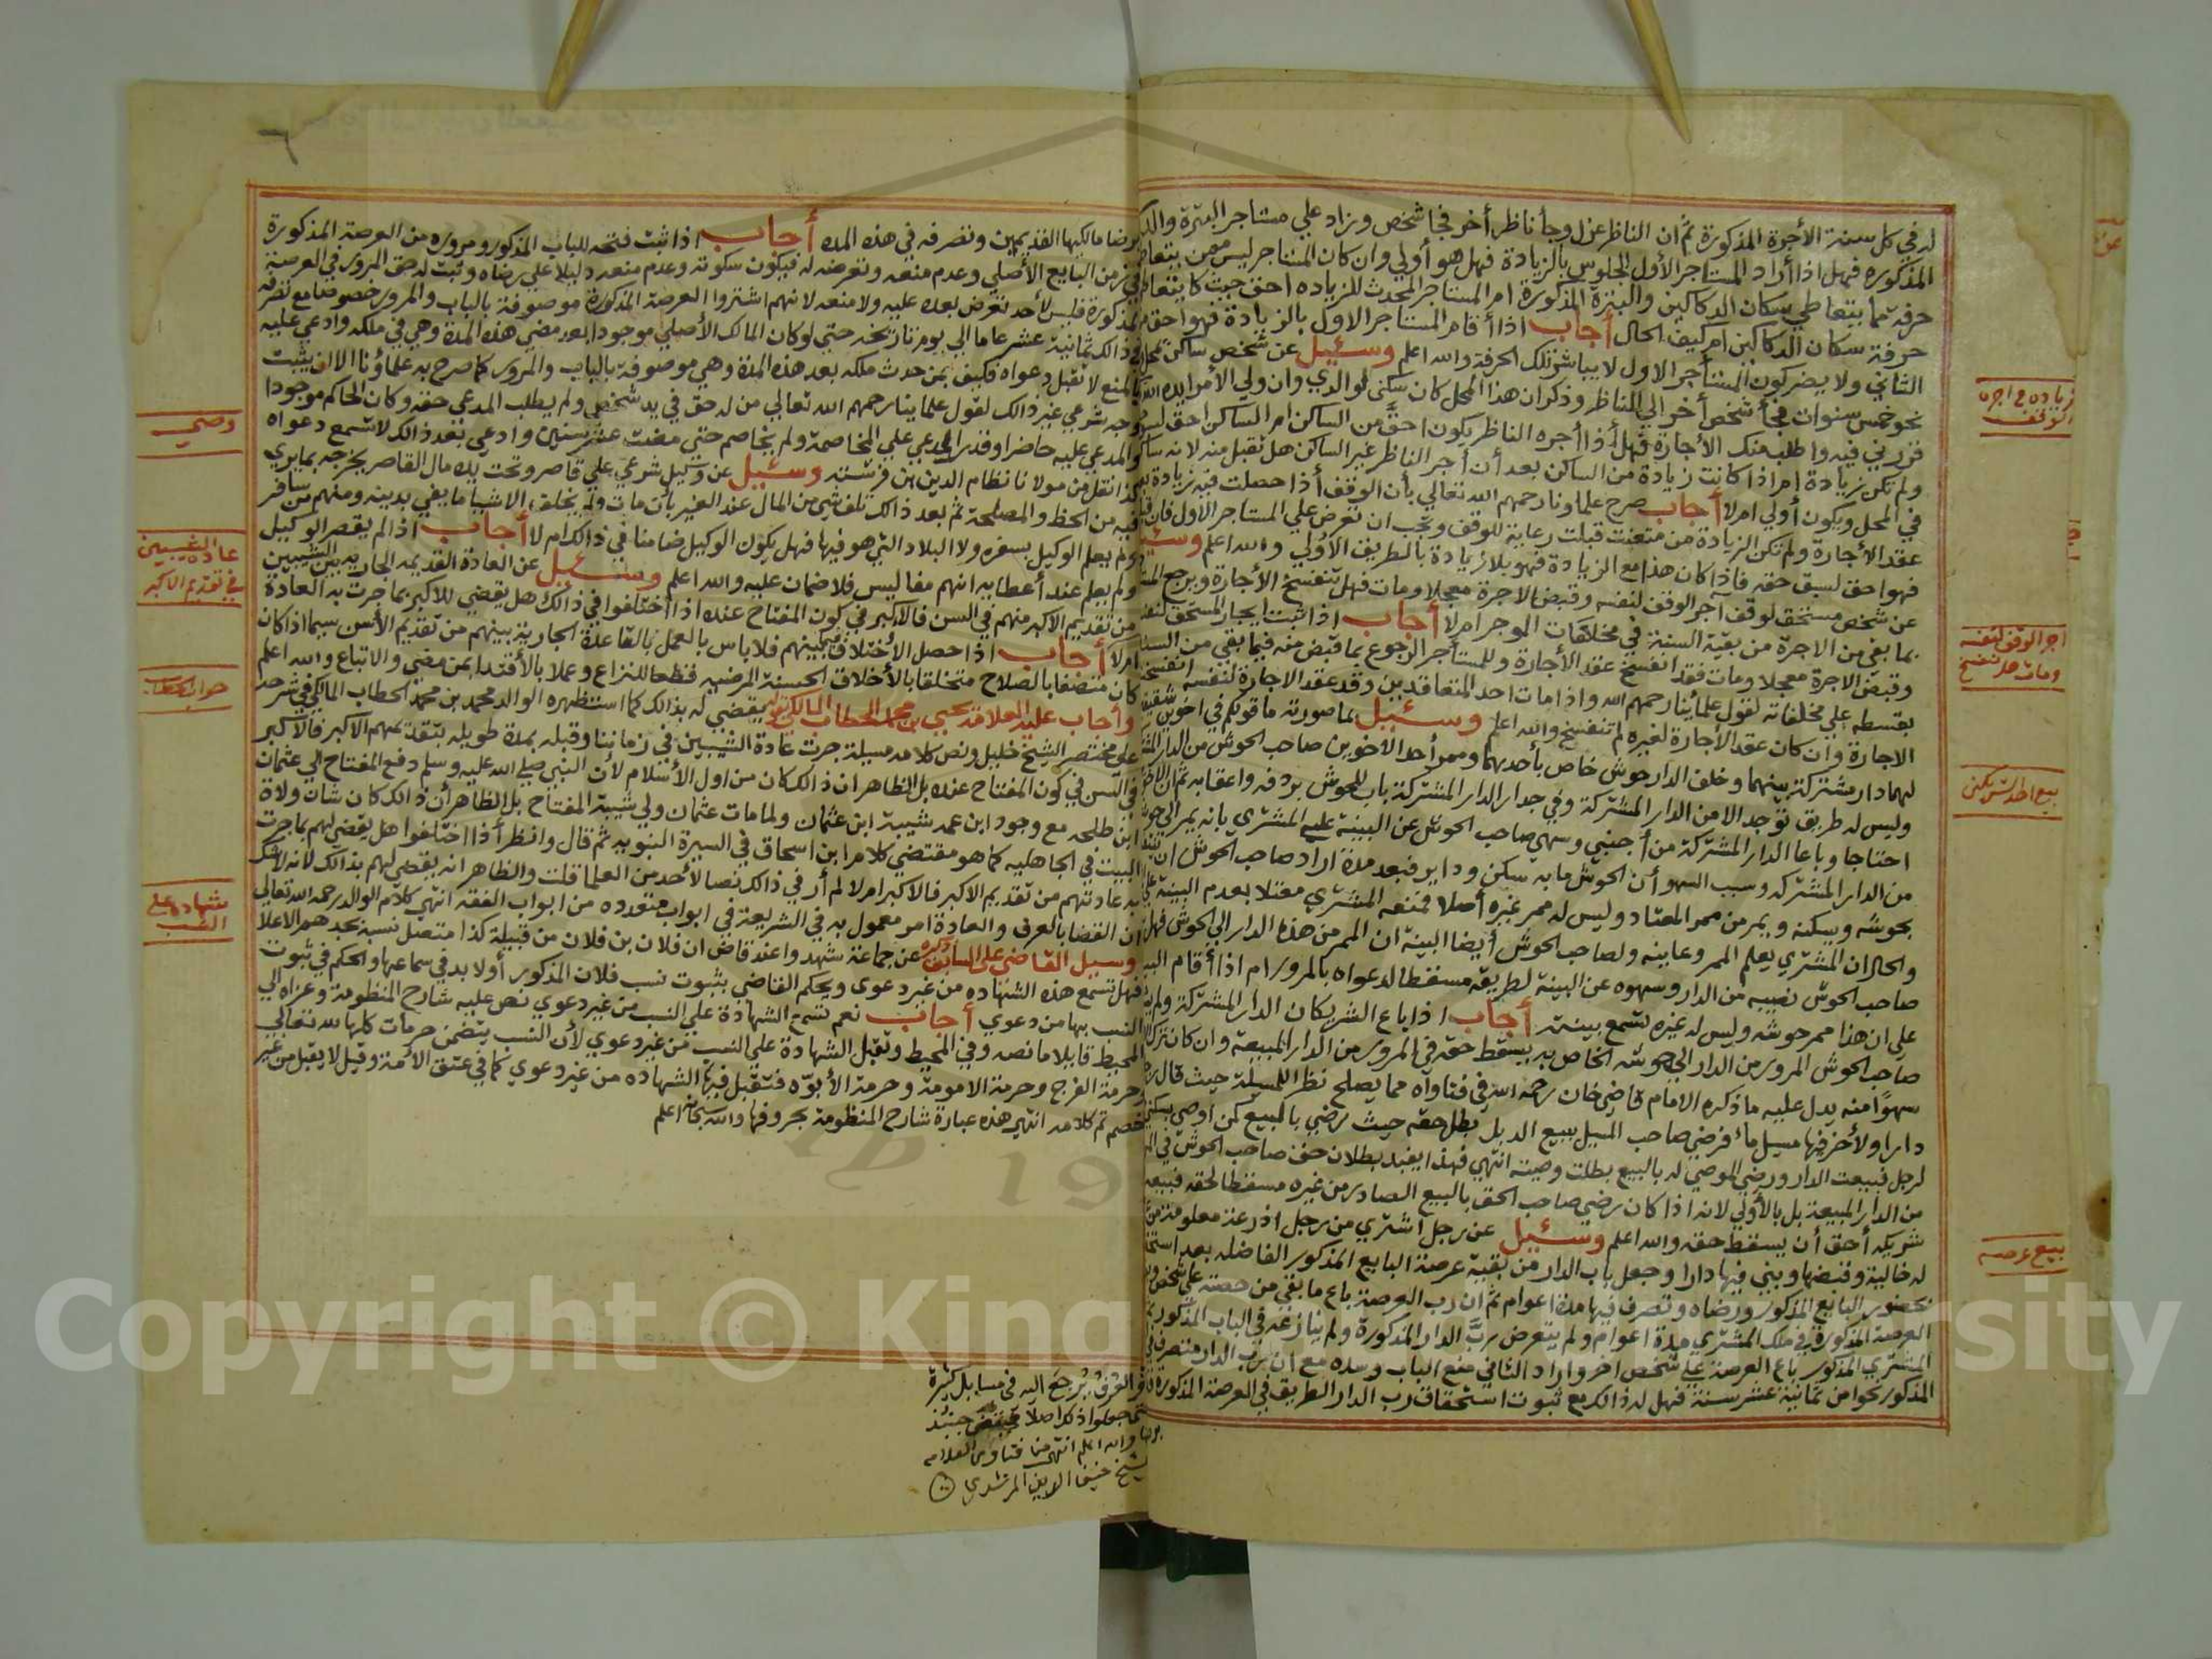 له في كل سنة الأجرة المذكورة ثم ان الناظر عزل وجأ ناظر أخر فجا شخص وزاد علي مستاجر البترة والدكا
المذكوره فهل اذا أراد المستاجر الأول الجلوس بالزيادة فهل هو أولي وان كان المستاجر ليس ممن يتعاط
حرفة مما يتعاطي سكان الدكاكين والبترة المذكورة ام المستاجر المحدث للزياده احق حيث كا يتعاط
حرفة سكان الدكاكين ام كيف الحال أجاب اذا أقام المستاجر الاول بالزيادة فهو احق من
الثاني ولا يضر كون المستأجر الاول لا يباشر تلك الحرفة والله اعلم وسئيل عن شخص ساكن لمحل
نحو خمس سنوات فجأ شخص أخر الي الناظر وذكر ان هذا المحل كان سكني لوالدي وان ولي الأمر ايده الله
قررني فيه واطلب منك الأجارة فهل أذا أجره الناظر يكون احق من الساكن ام الساكن احق لسبق
ولم تكن زيادة ام اذا كانت زيادة من الساكن بعد أن أجر الناظر غير الساكن هل تقبل منه لانه ساكن
في المحل ويكون أولي ام لا أجاب صرح علماونا رحمهم الله تعالي بأن الوقف أذا حصلت فيه زيادة بعد
عقد الأجارة ولم تكن الزيادة من متعنت قبلت رعاية للوقف ويجب ان تعرض علي المستاجر الاول فان قبل
فهو احق لسبق حقه فاذا كان هذا مع الزيادة فهو بلا زيادة بالطريق الأولي والله اعلم وسئيل
عن شخص مستحق لوقف آجر الوقف لنفسه وقبض الاجرة معجلا ومات فهل تنفسخ الأجارة ويرجع المستا
بما بقي من الاجرة من بقية السنة في مخلفات الموجر ام لا أجاب اذا ثبت ايجار المستحق لنفسه
وقبض الاجرة معجلا ومات فقد انفسخ عقد الأجارة وللمستأجر الرجوع بما قبض منه فيما بقي من السنة
بقسطه علي مخلفاته لقول علمأئنا رحمهم الله واذا مات احد المتعاقدين وقد عقد الاجارة لنفسه انفسخت
الاجارة وان كان عقد الأجارة لغيره لم تنفسخ والله اعلم وسئيل بما صورته ما قولكم في اخوين شقيقين
لهما دار مشتركة بينهما وخلف الدار حوش خاص بأحدهما وممر أحد الاخوين صاحب الحوش من الدار المشتر
وليس له طريق توجد الا من الدار المشتركة وفي جدار الدار المشتركة باب للحوش بردفه واعقابه ثم ان الاخوين
احتاجا وباعا الدار المشتركة من أجنبي وسهي صاحب الحوش عن البينة علي المشتري بانه يمر الي حوشه
من الدار المشتركه وسبب السهو أن الحوش ما به سكن ودابر فبعد مدة اراد صاحب الحوش ان ينتفع
بحوشه ويسكنه ويمر من ممر المعتاد وليس له ممر غيره أصلا فمنعه المشتري معتلا بعدم البينة عليه
والحال ان المشتري يعلم الممر وعاينه ولصاحب الحوش أيضا البينة ان الممر من هذا الدار الي الحوش فهل
صاحب الحوش نصيبه من الدار وسهوه عن البينة لطريقه مسقطا لدعواه بالمرور ام اذا أقام البينة
علي ان هذا ممر حوشه وليس له غيره تسمع بينته أجاب اذا باع الشريكان الدار المشتركة ولم يذ
صاحب الحوش المرور من الدار الي حوشه الخاص به يسقط حقه في المرور من الدار المبيعة وان كان تركه
سهوا منه يدل عليه ما ذكره الامام قاضي خان رحمه الله في فتاواه مما يصلح نظرا للمسيلة حيث قال رجل
دارا ولأخر فيها مسيل ماء فرضي صاحب المسيل ببيع الدبل بطل حقه حيث رضي بالبيع كمن أوصي بسكني
لرجل فبيعت الدار ورضي الموصي له بالبيع بطلت وصيته انتهي فهذا يفيد بطلان حق صاحب الحوش في المر
من الدار المبيعة بل بالأولي لانه اذا كان رضي صاحب الحق بالبيع الصادر من غيره مسقطا لحقه فبيعه
شريكه أحق أن يسقط حقه والله اعلم وسئيل عن رجل اشتري من رجل اذرعة معلومة من
له خالية وقبضها وبني فيها دارا وجعل باب الدار من بقية عرصة البايع المذكور الفاضله بعد استحقا
بحضور البايع المذكور ورضاه وتصرف فيها مدة اعوام ثم ان رب العرصة باع ما بقي من حصته علي شخص
العرصة المذكورة في ملك المشتري مدة اعوام ولم يتعرض رب الدار المذكورة ولم ينازعه في الباب المذكور ثم
المشتري المذكور باع العرصة علي شخص اخر واراد الثاني منع الباب وسده مع ان رب الدار متصرف في
المذكور نحوا من ثمانية عشر سنة فهل له ذالك مع ثبوت استحقاق رب الدار الطريق في العرصة المذكورة
زياده في اجرة
الوقف
اجر الوقف لنفسه
ومات هل تنفسخ
بيع عرصه
برضا مالكيها القديمين وتصرفه في هذه المده أجاب اذا ثبت فتحه للباب المذكور ومروره من العرصة المذكورة
في زمن البايع الأصلي وعدم منعه وتعرضه له فيكون سكوته وعدم منعه دليلا علي رضاه وثبت له حق المرور في العرصة
المذكورة فليس لأحد تعرض بعده عليه ولا منعه لانهم اشتروا العرصة المذكورة موصوفة بالباب والمرور خصوصا مع تصرفه
في ذالك ثمانية عشر عاما الي يومنا تاريخه حتي لو كان المالك الأصلي موجودا بعد مضي هذه المدة وهي في ملكه وادعي عليه
بالمنع لا تقبل دعواه فكيف بمن حدث ملكه بعد هذه المدة وهي موصوفة بالباب والمرور كما صرح به علماؤنا الا ان يثبت
وجه شرعي غير ذالك لقول علماينا رحمهم الله تعالي من له حق في يد شخص ولم يطلب المدعي حقه وكان الحاكم موجودا
والمدعي عليه حاضرا وقدر المدعي علي المخاصمة ولم يخاصم حتي مضت عشر سنين وادعي بعد ذالك لا تسمع دعواه
كذا نقل من مولانا نظام الدين بن فرشته وسئيل عن وكيل شرعي علي قاصر وتحت يده مال القاصر يخرجه بما يري
فيه من الحظ والمصلحة ثم بعد ذالك تلف شي من المال عند الغير بأن مات ولم يخلف الا شيا ما يفي بدينه ومنهم من سافر
ولم يعلم الوكيل بسفره ولا البلاد التي هو فيها فهل يكون الوكيل ضامنا في ذالك ام لا أجاب اذا لم يقصر الوكيل
ولم يعلم عند أعطايه انهم مفاليس فلا ضمان عليه والله اعلم وسئيل عن العادة القديمه الجاريه بين الشيبيين
من تقديم الاكبر منهم في السن فالاكبر في كون المفتاح عنده اذا أختلفوا في ذالك هل يقضي للاكبر بما جرت به العادة
ام لا أجاب اذا حصل الأختلاف بينهم فلا باس بالعمل بالقاعدة الجارية بينهم من تقديم الأسن سيما اذا كان
كان متصفا بالصلاح متخلقا بالأخلاق الحسنة المرضيه قطعا للنزاع وعملا بالأقتدا بمن مضي والاتباع والله اعلم
وأجاب عليه العلامة يحيي بن محمد الحطاب المالكي يقضي له بذالك كما استظهره الوالد محمد بن محمد الحطاب المالكي في شرحه
علي مختصر الشيخ خليل ونص كلامه مسيلة جرت عادة الشيبيين في زماننا وقبله بمدة طويله بتقديمهم الاكبر فالاكبر
في السن في كون المفتاح عنده بل الظاهر ان ذالك كان من اول الأسلام لأن النبي صلي الله عليه وسلم دفع المفتاح الي عثمان
ابن طلحه مع وجود ابن عمه شيبة ابن عثمان ولما مات عثمان ولي شيبة المفتاح بل الظاهر أن ذالك كان شان ولاة
البيت في الجاهليه كما هو مقتضي كلام ابن اسحاق في السيرة النبويه ثم قال وانظر أذا اختلفوا هل يقضي لهم بما جرت
به عادتهم من تقديم الاكبر فالاكبر ام لا لم أر في ذالك نصا لأحد من العلما قلت والظاهر انه يقضي لهم بذالك لأنه لا شك
أن القضا بالعرف والعادة امر معمول به في الشريعة في ابواب متعدده من ابواب الفقه انتهي كلام الوالد رحمه الله تعالي
وسيل القاضي علي السابق ذكره عن جماعة شهدوا عند قاض ان فلان بن فلان من قبيلة كذا متصل نسبه بجدهم الاعلا
فهل تسمع هذه الشهاده من غير دعوي ويحكم القاضي بثبوت نسب فلان المذكور أولا بد في سماعها والحكم في ثبوت
النسب بها من دعوي أجاب نعم تسمع الشهادة علي النسب من غير دعوي نص عليه شارح المنظومة وعزاه الي
المحيط قايلا ما نصه وفي المحيط وتقبل الشهادة علي النسب من غير دعوي لأن النسب يتضمن حرمات كلها لله تعالي
حرمة الفرج وحرمة الامومة وحرمة الأبوه فتقبل فيها الشهاده من غير دعوي كما في عتق الامة وقيل لا يقبل من غير
خصم تم كلامه انتهي هذه عبارة شارح المنظومة بحروفها والله سبحانه اعلم
العرف يرجع اليه في مسايل كثيرة
حتي جعلوا ذلك اصلا
والله اعلم انتهي من فتاوي العلامه
الشيخ حنيف الدين المرشدي
وصي
عادة الشيبيين
في تقديم الاكبر
جواب الحطاب
شهاده علي
النسب
٦
Copyright © King ersity